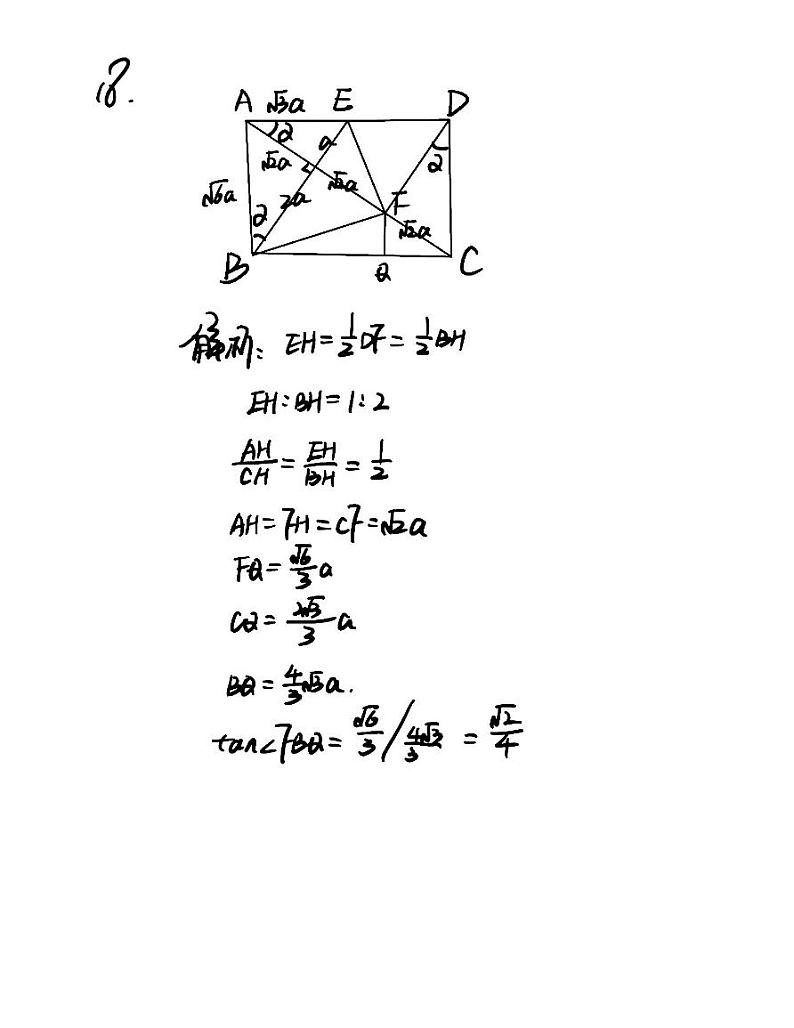 18.
A √3a E D
2 a
√2a 2
√6a √2a
2 2a F
√2a
B Q C
解析: EH=1/2DF=1/2BH
EH:BH=1:2
AH/CH=EH/BH=1/2
AH=FH=CF=√2a
FQ=√6/3 a
CQ=2√3/3 a
BQ=4/3√3a.
tan∠FBQ=√6/3 / 4√3/3 =√2/4